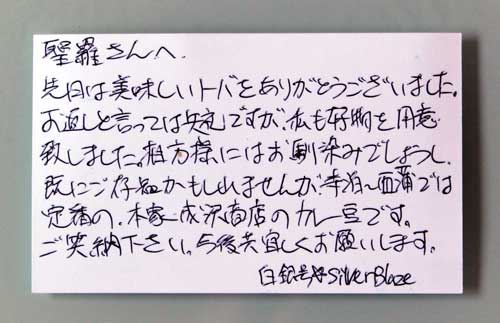 聖羅さんへ.
先日は美味しいトバをありがとうございました。
お返しと言っては失礼ですが、私も好物を用意
致しました。相方様にはお馴染みでしょうし、
既にご存知かもしれませんが、幸泊〜西蒲では
定番の、本家成沢商店のカレー豆です。
ご笑納下さい。今後共宜しくお願いします。
白銀号SilverBlaze